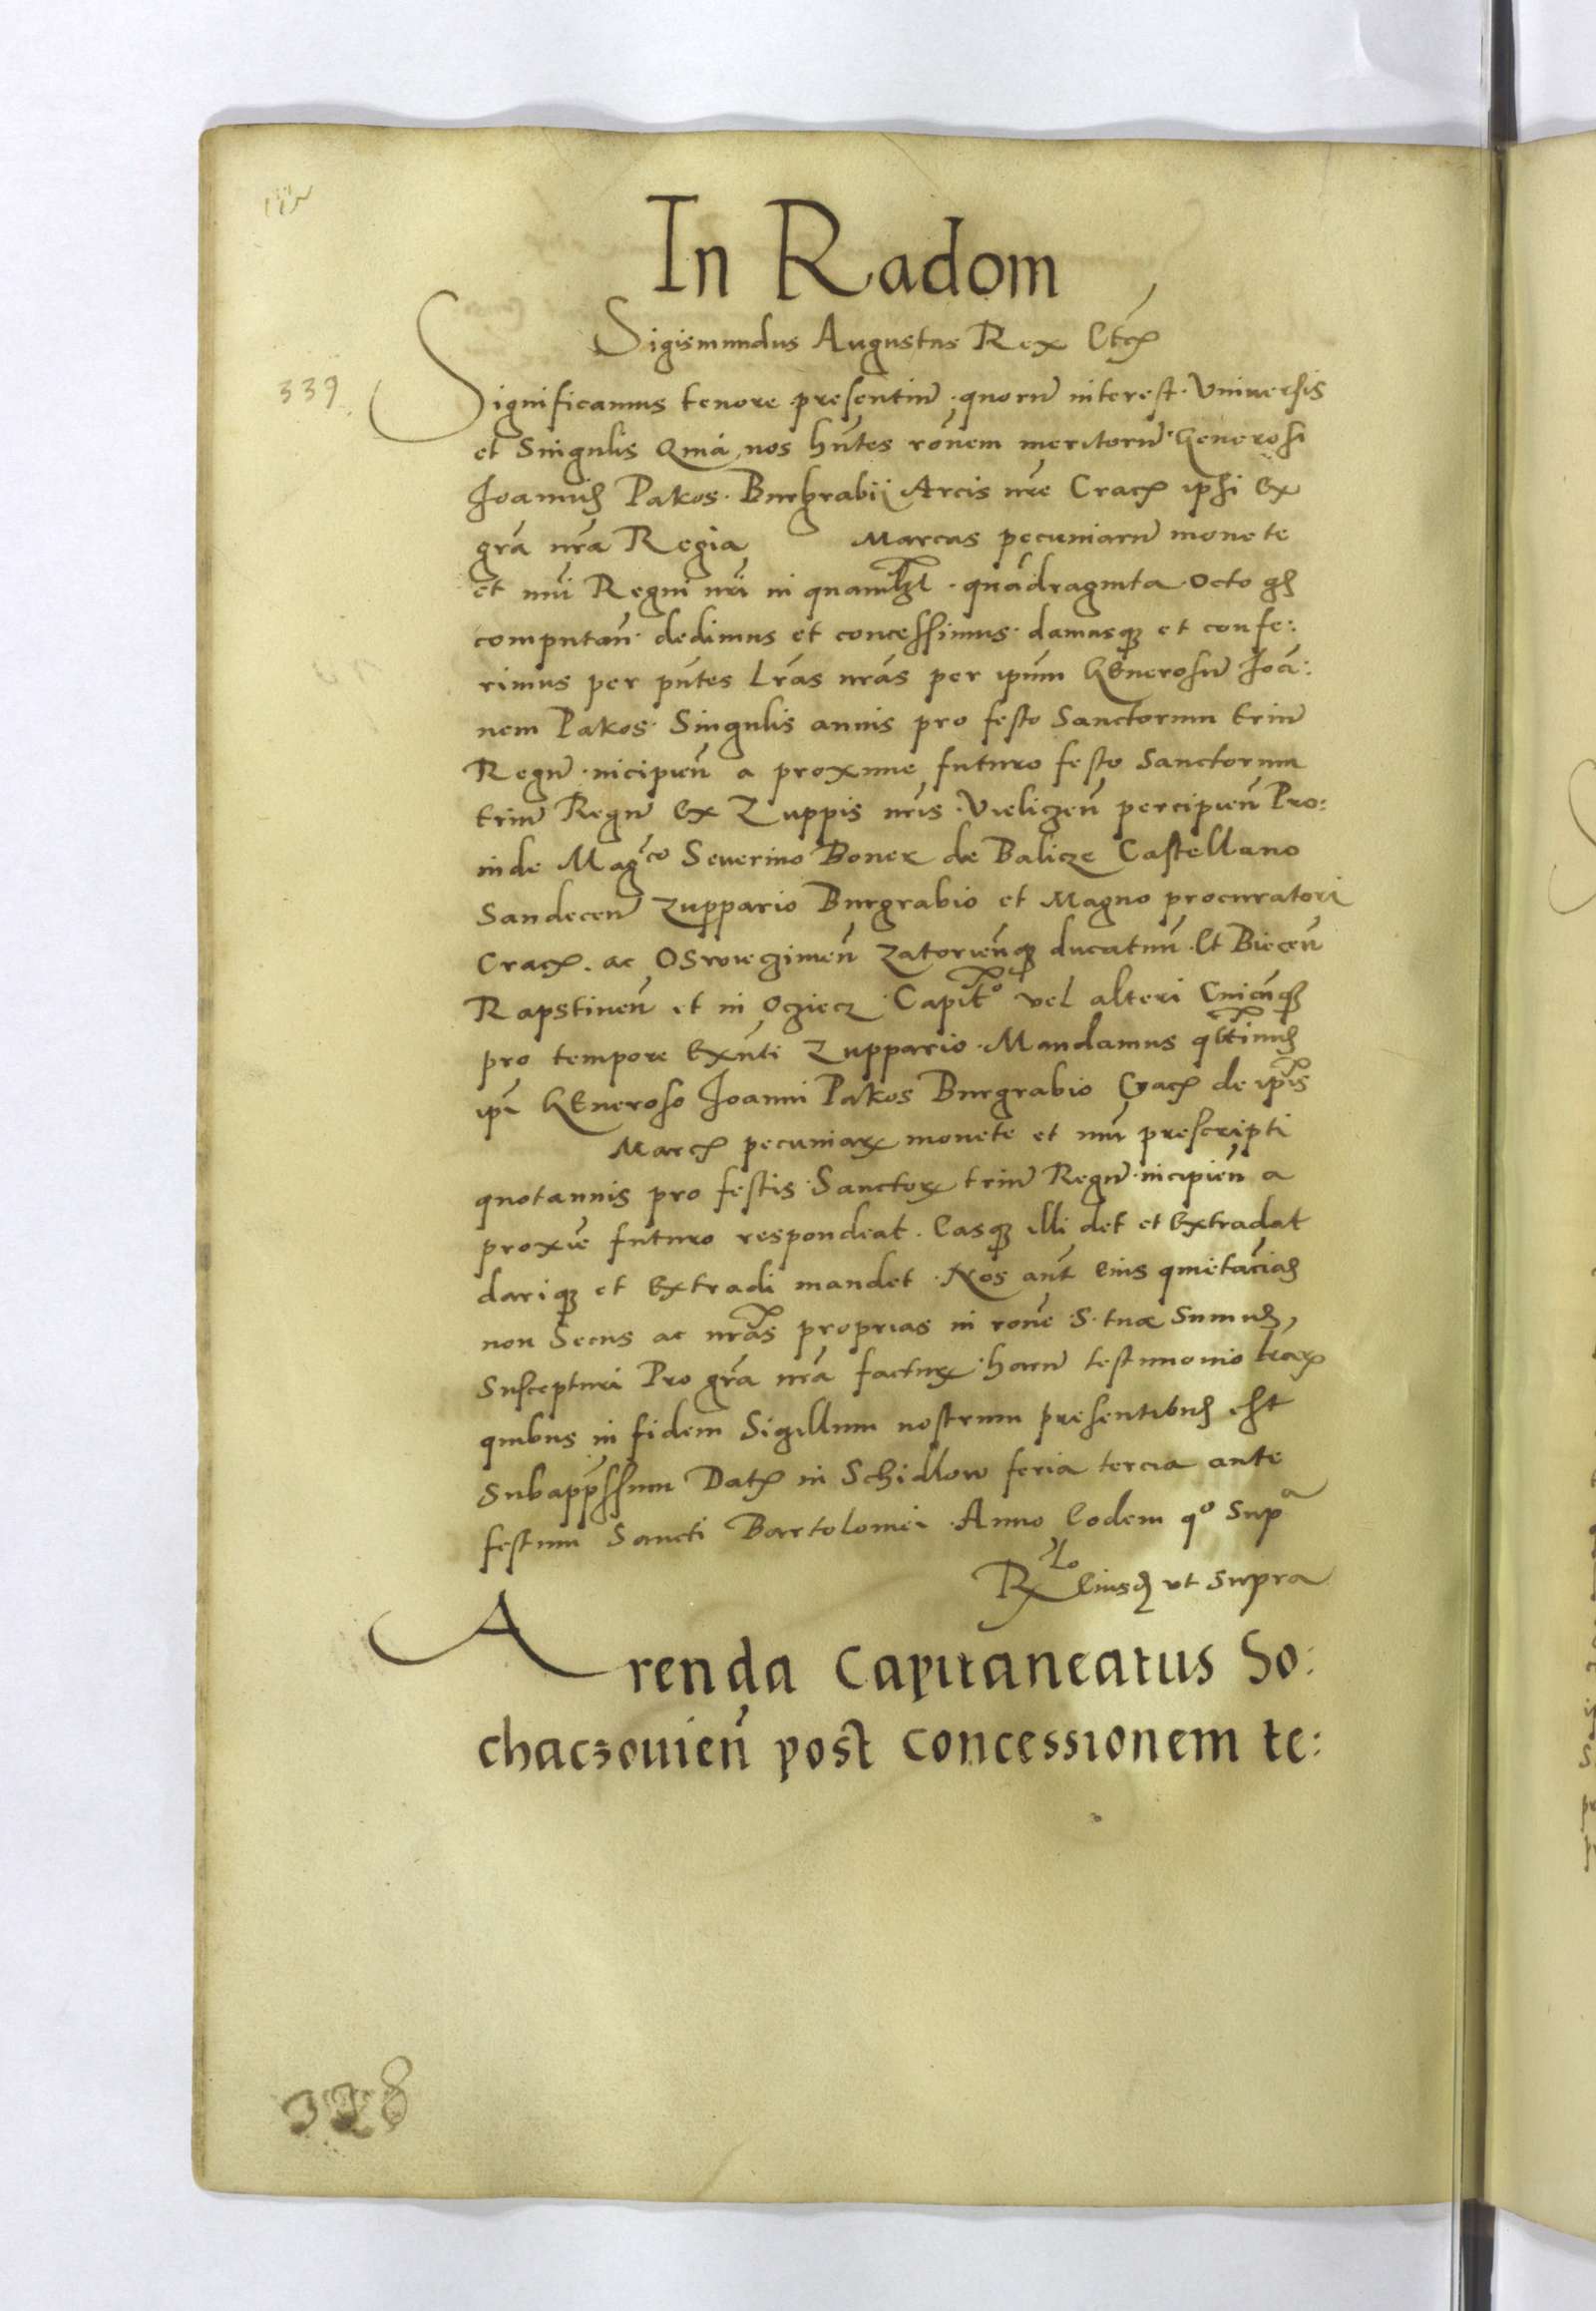 In Radom
Sigismundus Augustus Rex Etc
339
Significamus tenore presentiu quoru interest Vniuersis
et Singulis Quia nos hntes ronem meritoru Generosi
Joannis Pakos Burgrabii Arcis nre Crac ipsi ex
gra nra Regia Marcas pecuniaru monete
et nui Regni nri in quamlibet quadraginta octo gs
computan dedimus et concessimus damusq et confe:
rimus per pntes Lras nras per ipum Generosu Joa:
nem Pakos Singulis annis pro festo Sanctorum triu
Regu incipien a proxime futuro festo Sanctorum
triu Regu ex Zuppis nris Vieliczen percipien Pro:
inde Magco Seuerino Boner de Balicze Castellano
Sandecen Zuppario Burgrabio et Magno procuratori
Crac. ac Oswieczimen Zatorienq ducatuu Et Biecen
Rapstinen et in Ocziecz Capito vel alteri Cuicunq
pro tempore Exnti Zuppario Mandamus qtinus
ipi Generoso Joanni Pakos Burgrabio Crac de ipis
Marc pecuniar monete et nui prescripti
quotannis pro festis Sanctor triu Regu incipien a
proxie futuro respondeat. Easq illi det et Extradat
dariq et Extradi mandet Nos aut eius quietacias
non Secus ac nras proprias in rone S. tuæ Sumus,
Suscepturi Pro gra nra factur haru testimonio lrar
quibus in fidem Sigillum nostrum presentibus est
Subappssum Dat in Schidlow feria tercia ante
festum Sancti Bartolomei Anno Eodem qo Supa
Rlo Eiusd vt supra
Arenda Capitaneatus So:
chaczouien post concessionem te:
328